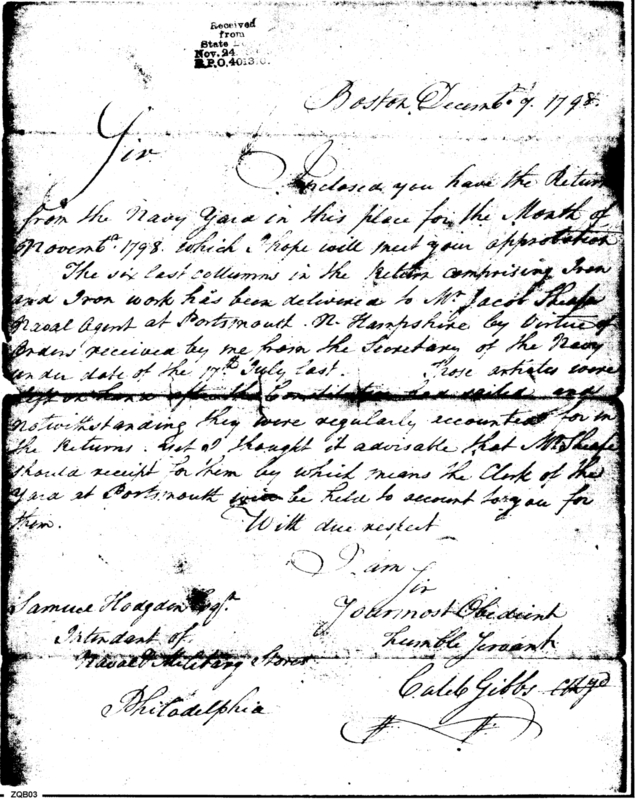 Received
from
State
Nov. 24
R.P.O. 4013
Boston, Decembr. 7. 1798.
Sir
Inclosed you have the Return
from the Navy Yard in this place for the Month of
Novembr. 1798. which I hope will meet your approbation
The six last collumns in the Return comprising Iron
and Iron work has been delivered to Mr. Jacob Sheafe
Naval Agent at Portsmouth. N. Hampshire by Virtue of
Orders received by me from the Secretary of the Navy
under date of the 17th July last. Those articles were
left on hand after the Constitution had sailed and
notwithstanding they were regularly accounted for in
the Returns. yet I thought it advisable that Mr. Sheafe
should receipt for them by which means the Clerk of the
Yard at Portsmouth be held to account to you for
them. With due respect
I am
Sir
Your most Obedient
humble Servant
Caleb Gibbs
Samuel Hodgdon Esqr.
Intendant of
Naval & Military Stores
Philadelphia
ZQB03